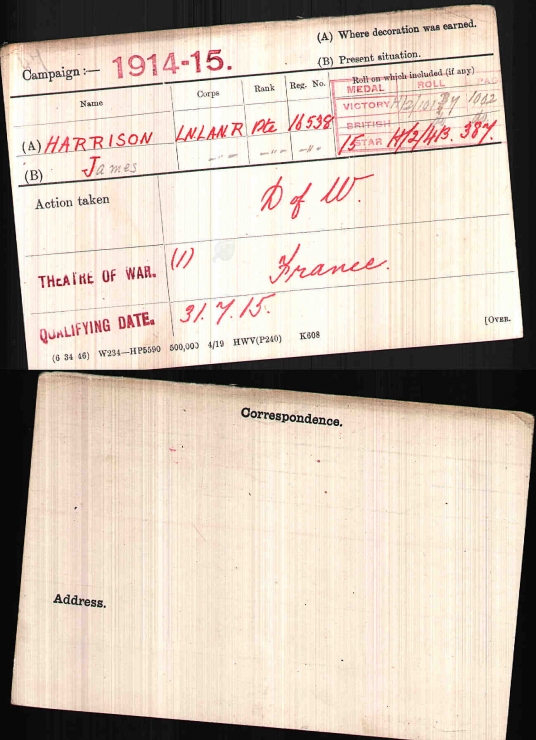 (A) Where decoration was earned.
Campaign:— 1914-15.
(B) Present situation.
Name Corps Rank Reg. No. Roll on which included (if any)
MEDAL ROLL PAGE
(A) HARRISON LNLANR Pte 16538 VICTORY 1002
(B) James —"— —"— —"— BRITISH
15 STAR H/2/4B. 387.
Action taken D of W.
THEATRE OF WAR. (1) France.
QUALIFYING DATE. 31.7.15.
(6 34 46) W234—HP5590 500,000 4/19 HWV(P240) K608 [OVER.
Correspondence.
Address.